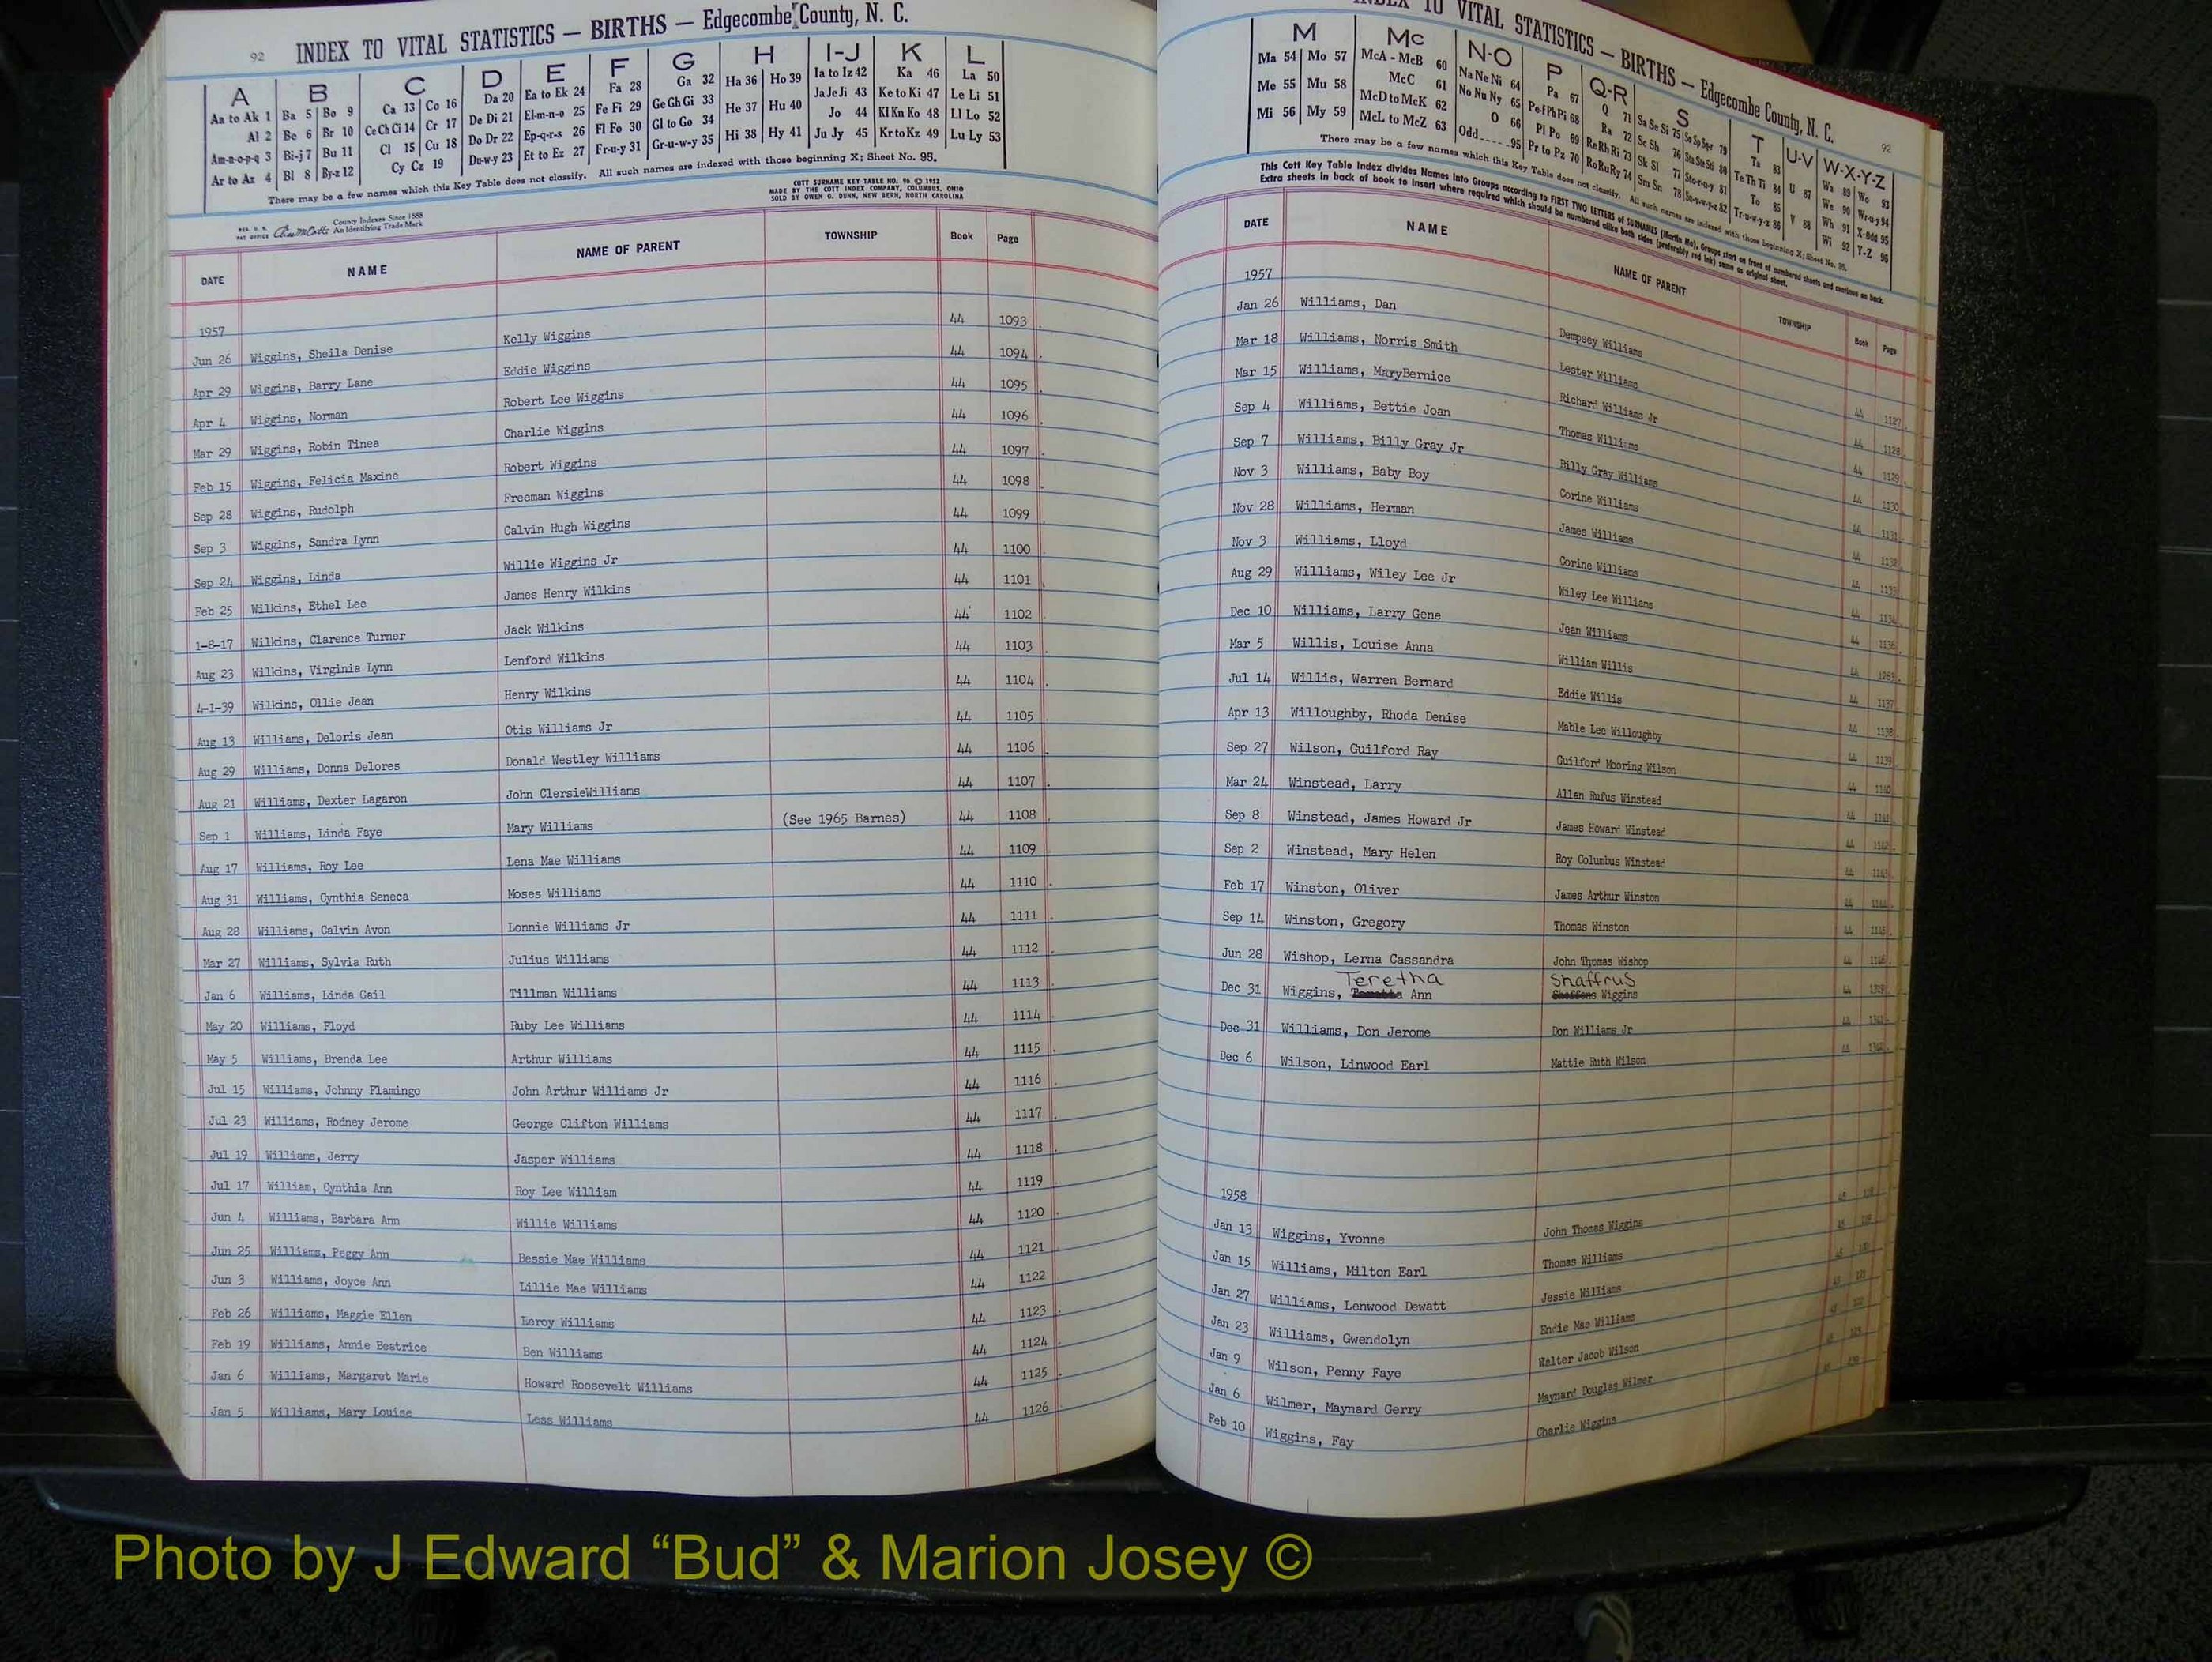 92 INDEX TO VITAL STATISTICS — BIRTHS — Edgecombe County, N. C.
A B C D E F G H I-J K L
Aa to Ak 1 Ba 5 Bo 9 Ca 13 Co 16 Da 20 Ea to Ek 24 Fa 28 Ga 32 Ha 36 Ho 39 Ia to Iz 42 Ka 46 La 50
Al 2 Be 6 Br 10 Ce Ch Ci 14 Cr 17 De Di 21 El-m-n-o 25 Fe Fi 29 Ge Gh Gi 33 He 37 Hu 40 Ja Je Ji 43 Ke to Ki 47 Le Li 51
Am-n-o-p-q 3 Bi-j 7 Bu 11 Cl 15 Cu 18 Do Dr 22 Ep-q-r-s 26 Fl Fo 30 Gl to Go 34 Hi 38 Hy 41 Jo 44 Kl Kn Ko 48 Ll Lo 52
Ar to Az 4 Bl 8 By-z 12 Cy Cz 19 Du-w-y 23 Et to Ez 27 Fr-u-y 31 Gr-u-w-y 35 Ju Jy 45 Kr to Kz 49 Lu Ly 53
There may be a few names which this Key Table does not classify. All such names are indexed with those beginning X; Sheet No. 95.
COTT SURNAME KEY TABLE NO. 96 © 1952
MADE BY THE COTT INDEX COMPANY, COLUMBUS, OHIO
SOLD BY OWEN G. DUNN, NEW BERN, NORTH CAROLINA
County Indexes Since 1888
An Identifying Trade Mark
DATE NAME NAME OF PARENT TOWNSHIP Book Page
1957
Jun 26 Wiggins, Sheila Denise Kelly Wiggins 44 1093
Apr 29 Wiggins, Barry Lane Eddie Wiggins 44 1094
Apr 4 Wiggins, Norman Robert Lee Wiggins 44 1095
Mar 29 Wiggins, Robin Tinea Charlie Wiggins 44 1096
Feb 15 Wiggins, Felicia Maxine Robert Wiggins 44 1097
Sep 28 Wiggins, Rudolph Freeman Wiggins 44 1098
Sep 3 Wiggins, Sandra Lynn Calvin Hugh Wiggins 44 1099
Sep 24 Wiggins, Linda Willie Wiggins Jr 44 1100
Feb 25 Wilkins, Ethel Lee James Henry Wilkins 44 1101
1-8-17 Wilkins, Clarence Turner Jack Wilkins 44 1102
Aug 23 Wilkins, Virginia Lynn Lenford Wilkins 44 1103
4-1-39 Wilkins, Ollie Jean Henry Wilkins 44 1104
Aug 13 Williams, Deloris Jean Otis Williams Jr 44 1105
Aug 29 Williams, Donna Delores Donald Westley Williams 44 1106
Aug 21 Williams, Dexter Lagaron John ClersieWilliams 44 1107
Sep 1 Williams, Linda Faye Mary Williams (See 1965 Barnes) 44 1108
Aug 17 Williams, Roy Lee Lena Mae Williams 44 1109
Aug 31 Williams, Cynthia Seneca Moses Williams 44 1110
Aug 28 Williams, Calvin Avon Lonnie Williams Jr 44 1111
Mar 27 Williams, Sylvia Ruth Julius Williams 44 1112
Jan 6 Williams, Linda Gail Tillman Williams 44 1113
May 20 Williams, Floyd Ruby Lee Williams 44 1114
May 5 Williams, Brenda Lee Arthur Williams 44 1115
Jul 15 Williams, Johnny Flamingo John Arthur Williams Jr 44 1116
Jul 23 Williams, Rodney Jerome George Clifton Williams 44 1117
Jul 19 Williams, Jerry Jasper Williams 44 1118
Jul 17 William, Cynthia Ann Roy Lee William 44 1119
Jun 4 Williams, Barbara Ann Willie Williams 44 1120
Jun 25 Williams, Peggy Ann Bessie Mae Williams 44 1121
Jun 3 Williams, Joyce Ann Lillie Mae Williams 44 1122
Feb 26 Williams, Maggie Ellen Leroy Williams 44 1123
Feb 19 Williams, Annie Beatrice Ben Williams 44 1124
Jan 6 Williams, Margaret Marie Howard Roosevelt Williams 44 1125
Jan 5 Williams, Mary Louise Less Williams 44 1126
INDEX TO VITAL STATISTICS — BIRTHS — Edgecombe County, N. C. 92
M Mc N-O P Q-R S T U-V W-X-Y-Z
Ma 54 Mo 57 McA - McB 60 Na Ne Ni 64 Pa 67 Q 71 Sa Se Si 75 So Sp Sq-r 79 Ta 83 U 87 Wa 89 Wo 93
Me 55 Mu 58 McC 61 No Nu Ny 65 Pe-f Ph Pi 68 Ra 72 Sc Sh 76 Sta Ste Sti 80 Te Th Ti 84 V 88 We 90 Wr-u-y 94
Mi 56 My 59 McD to McK 62 O 66 Pl Po 69 Re Rh Ri 73 Sk Sl 77 Sto-r-u-y 81 To 85 Wh 91 X-Odd 95
McL to McZ 63 Odd 95 Pr to Pz 70 Ro Ru Ry 74 Sm Sn 78 Su-v-w-y-z 82 Tr-u-w-y-z 86 Wi 92 Y-Z 96
There may be a few names which this Key Table does not classify. All such names are indexed with those beginning X; Sheet No. 95.
This Cott Key Table Index divides Names into Groups according to FIRST TWO LETTERS of SURNAMES (Martin Ma), Groups start on front of numbered sheets and continue on back.
Extra sheets in back of book to insert where required which should be numbered alike both sides (preferably red ink) same as original sheet.
DATE NAME NAME OF PARENT TOWNSHIP Book Page
1957
Jan 26 Williams, Dan Dempsey Williams 44 1127
Mar 18 Williams, Norris Smith Lester Williams 44 1128
Mar 15 Williams, MaryBernice Richard Williams Jr 44 1129
Sep 4 Williams, Bettie Joan Thomas Williams 44 1130
Sep 7 Williams, Billy Gray Jr Billy Gray Williams 44 1131
Nov 3 Williams, Baby Boy Corine Williams 44 1132
Nov 28 Williams, Herman James Williams 44 1133
Nov 3 Williams, Lloyd Corine Williams 44 1134
Aug 29 Williams, Wiley Lee Jr Wiley Lee Williams 44 1136
Dec 10 Williams, Larry Gene Jean Williams 44 1263
Mar 5 Willis, Louise Anna William Willis 44 1137
Jul 14 Willis, Warren Bernard Eddie Willis 44 1138
Apr 13 Willoughby, Rhoda Denise Mable Lee Willoughby 44 1139
Sep 27 Wilson, Guilford Ray Guilford Mooring Wilson 44 1140
Mar 24 Winstead, Larry Allan Rufus Winstead 44 1141
Sep 8 Winstead, James Howard Jr James Howard Winstead 44 1142
Sep 2 Winstead, Mary Helen Roy Columbus Winstead 44 1143
Feb 17 Winston, Oliver James Arthur Winston 44 1144
Sep 14 Winston, Gregory Thomas Winston 44 1145
Jun 28 Wishop, Lerna Cassandra John Thomas Wishop 44 1146
Teretha Shaffrus
Dec 31 Wiggins, Ann Wiggins 44
Dec 31 Williams, Don Jerome Don Williams Jr 44
Dec 6 Wilson, Linwood Earl Mattie Ruth Wilson 44
1958
Jan 13 Wiggins, Yvonne John Thomas Wiggins
Jan 15 Williams, Milton Earl Thomas Williams
Jan 27 Williams, Lenwood Dewatt Jessie Williams
Jan 23 Williams, Gwendolyn Endie Mae Williams
Jan 9 Wilson, Penny Faye Walter Jacob Wilson
Jan 6 Wilmer, Maynard Gerry Maynard Douglas Wilmer
Feb 10 Wiggins, Fay Charlie Wiggins
Photo by J Edward “Bud” & Marion Josey ©